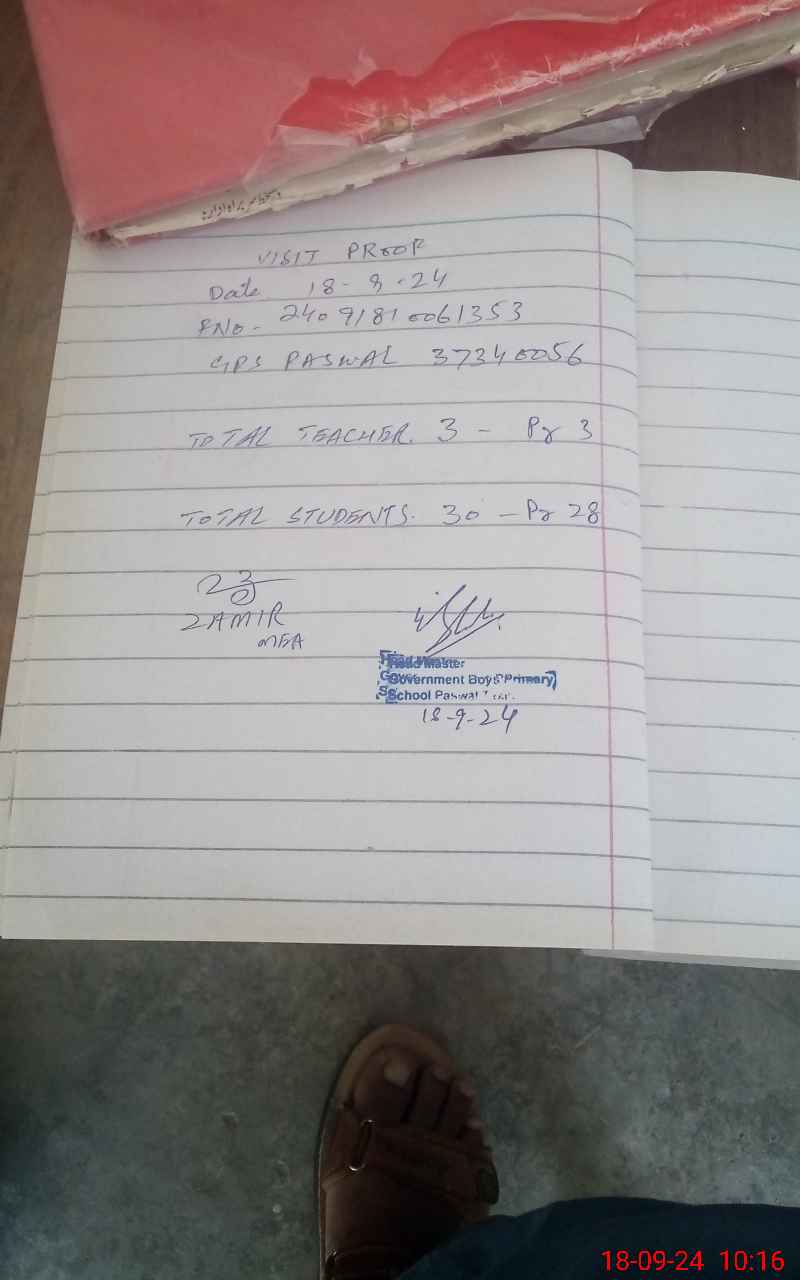 VISIT PROOF
Date 18-9-24
RNo- 2409181006 1353
GPS PASWAL 37340056
TOTAL TEACHER. 3 - Pr 3
TOTAL STUDENTS. 30 - Pr 28
ZAMIR
MEA
Head Master
Government Boys Primary
School Paswal
18-9-24
18-09-24 10:16